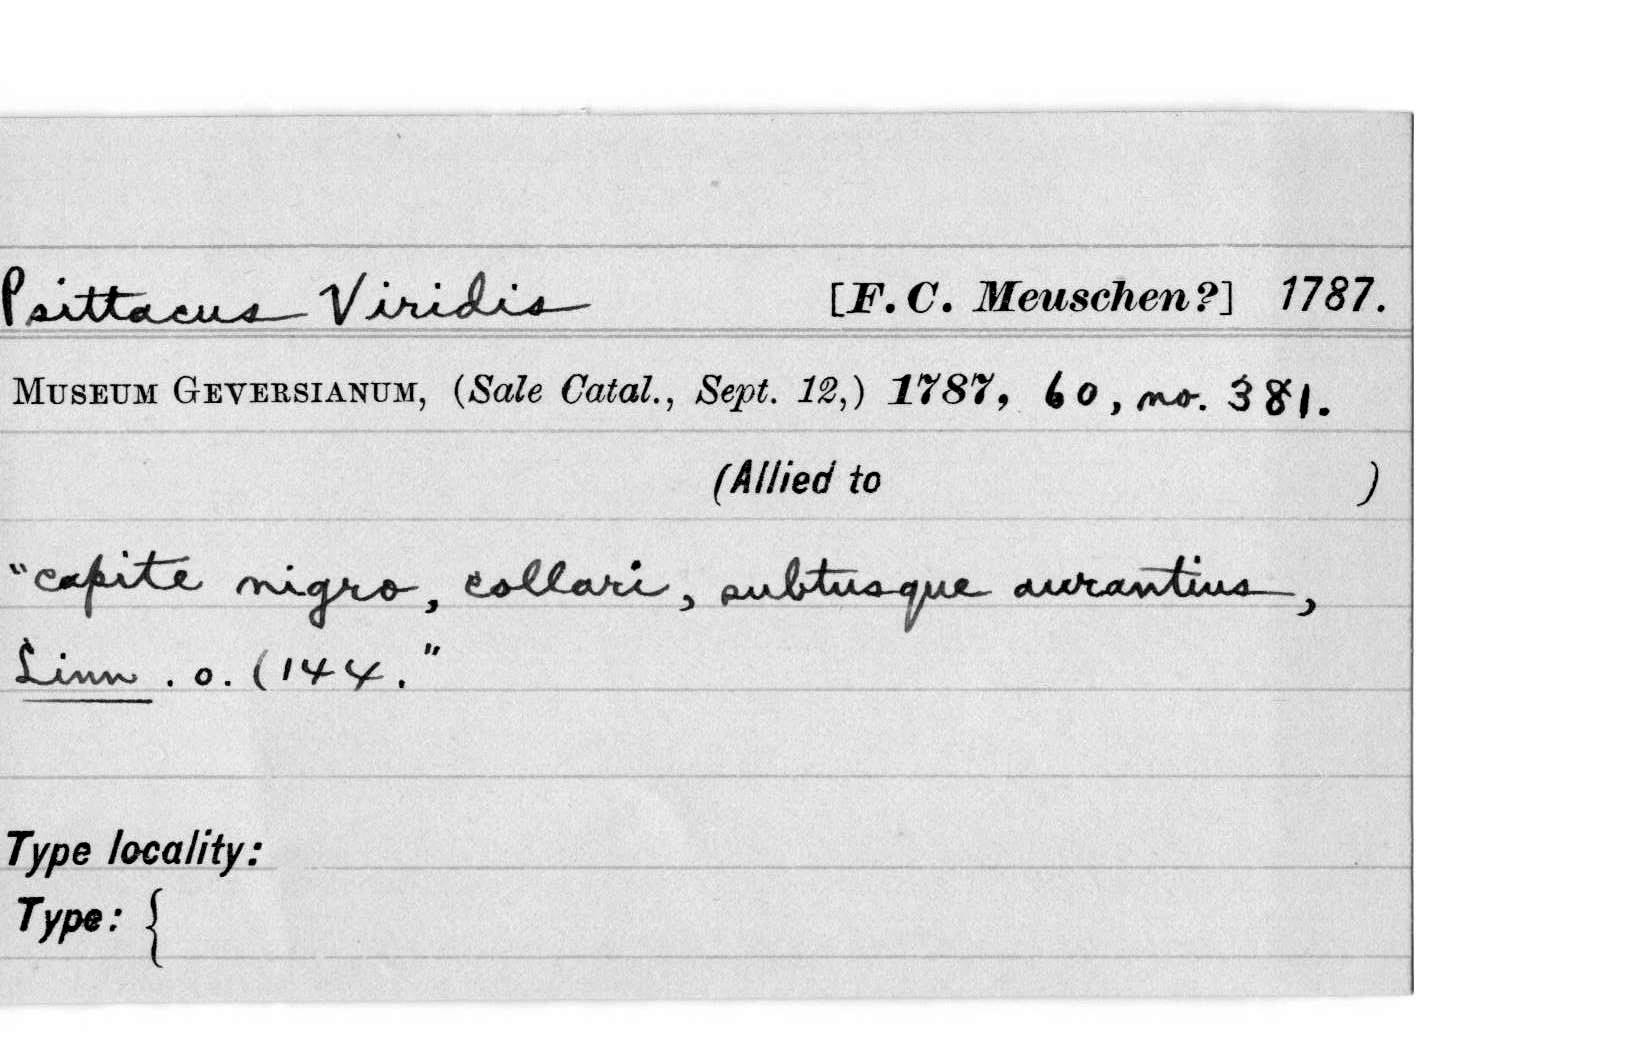 Psittacus Viridis [F. C. Meuschen?] 1787.
MUSEUM GEVERSIANUM, (Sale Catal., Sept. 12,) 1787, 60, no. 381.
(Allied to )
"capite nigro, collari, subtusque aurantius,
Linn . o. (144."
Type locality:
Type: {